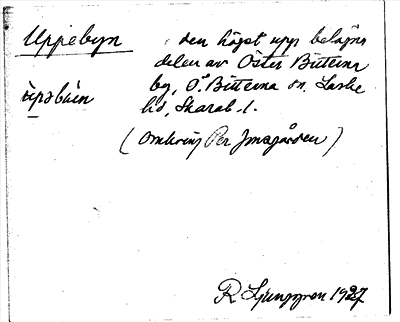 Uppebyn
den högst upp belägna
delen av Öster Bitterna
by, Ö. Bitterna sn. Laske
hd, Skarab. l.
ùpəbùɩn
(omkring Per Jonsgården)
R Ljunggren 1927